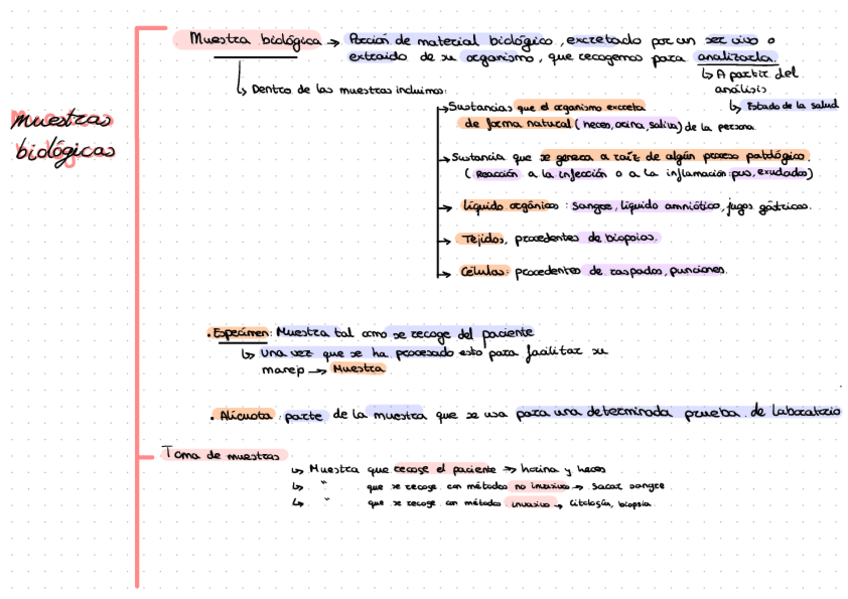 Muestra biológica → Porción de material biológico, excretado por un ser vivo o
extraido de su organismo, que recogemos para analizarla.
↳ A partir del
análisis
↳ Estado de la salud
↳ Dentro de las muestras incluimos:
muestras
biológicas
→ Sustancias que el organismo excreta
de forma natural (heces, orina, saliva) de la persona.
→ Sustancia que se genera a raíz de algún proceso patológico.
(Reacción a la infección o a la inflamación: pus, exudados)
→ líquido orgánico: sangre, líquido amniótico, jugos gástricos.
→ Tejidos, procedentes de biopsias.
→ Células: procedentes de raspados, punciones.
• Espécimen: Muestra tal como se recoge del paciente
↳ Una vez que se ha procesado esto para facilitar su
manejo → Muestra
• Alícuota: parte de la muestra que se usa para una determinada prueba de laboratorio
Toma de muestras
↳ Muestra que recoge el paciente → horina y heces
↳ " que se recoge con métodos no invasivo → sacar sangre
↳ " que se recoge con métodos invasivo → Citología, biopsia